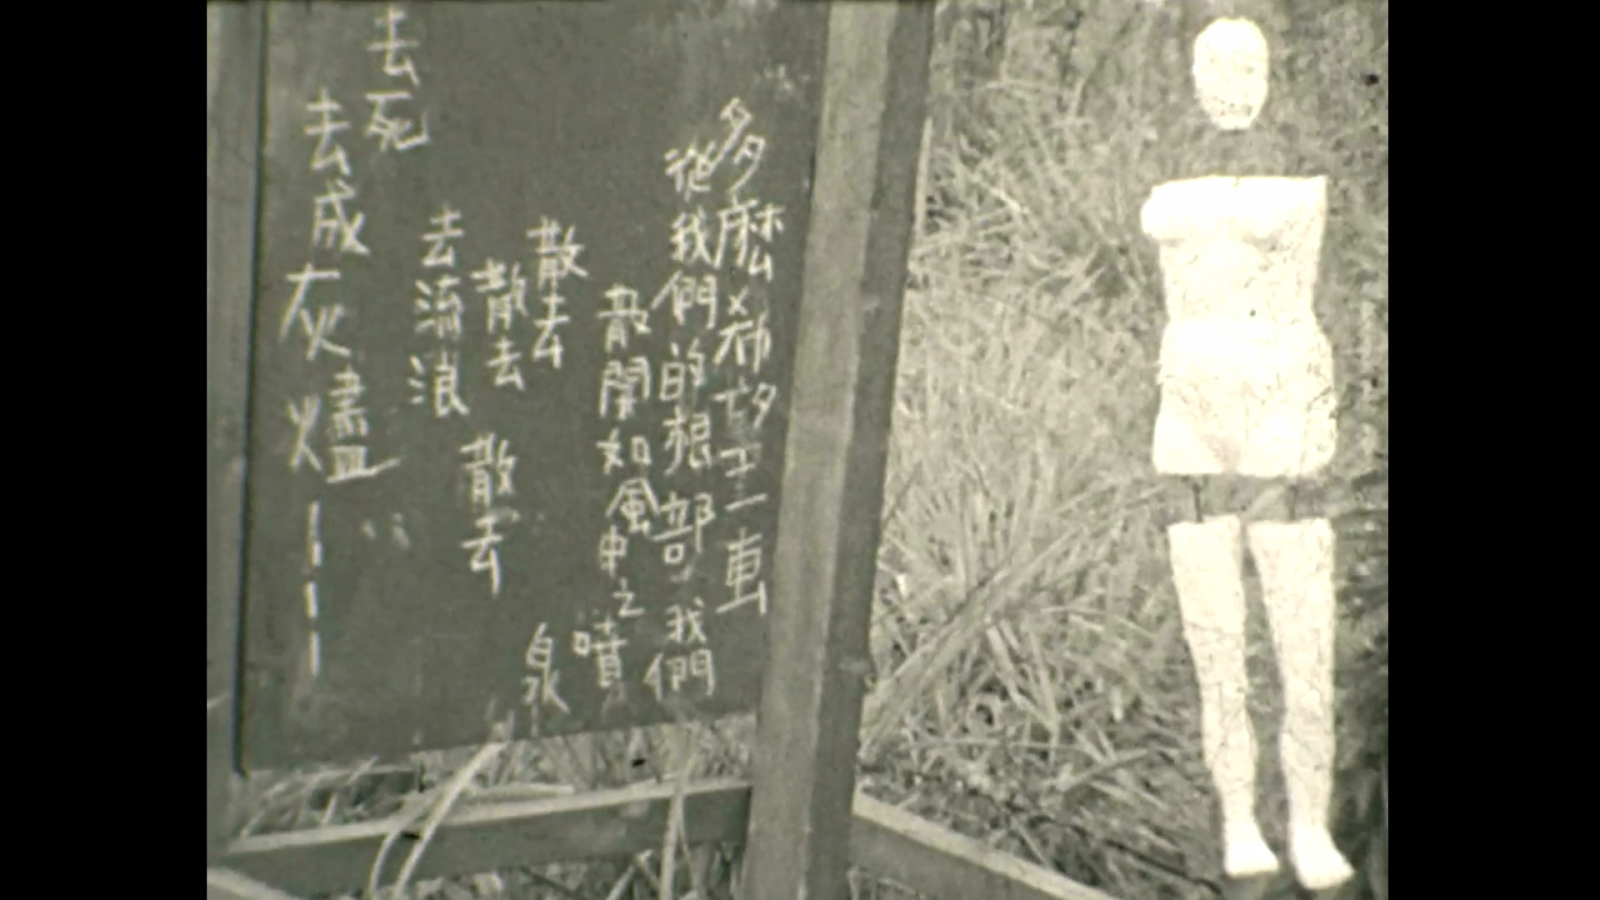 多麼希望
從我們的根部 我們
散開如風中之噴泉
散去
散去 散去
去流浪
去死
去成灰燼———